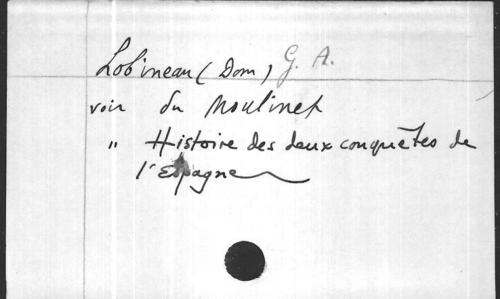 Lobineau (Dom) G. A.
voir du Moulinet
" Histoire des deux conquêtes de
l'Espagne